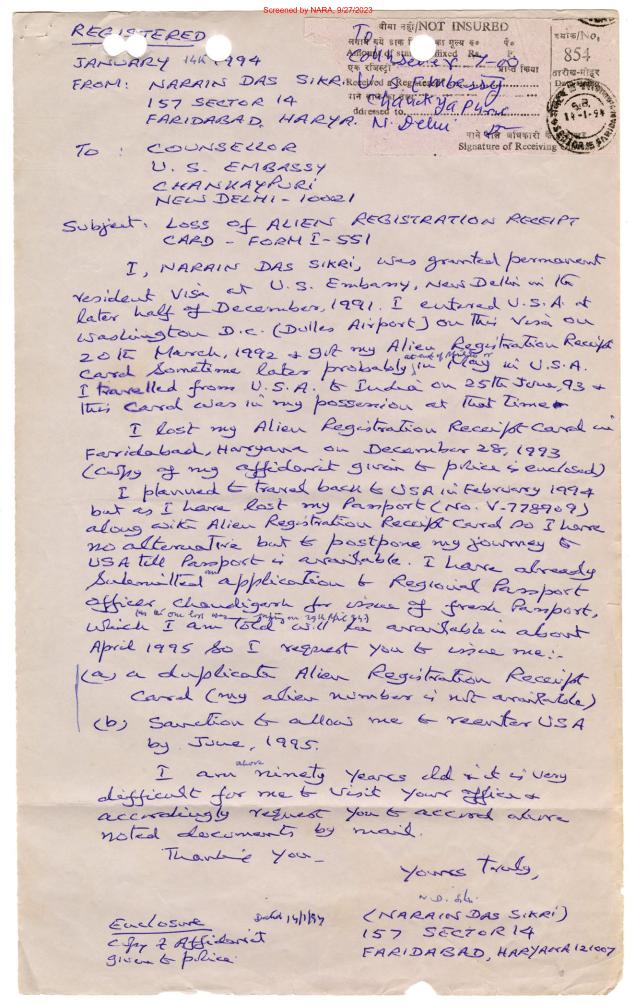 Screened by NARA, 9/27/2023
REGISTERED
JANUARY 14th 1994
FROM: NARAIN DAS SIKRI
157 SECTOR 14
FARIDABAD, HARYA.
बीमा नहीं/NOT INSURED
क्रमांक/No.
854
Received a Registered
addressed to
To
Counsellor
U.S. Embassy
Chankya Puri
N. Delhi
Signature of Receiving
TO : COUNSELLOR
U. S. EMBASSY
CHANKAYPURI
NEW DELHI - 10021
Subject: LOSS OF ALIEN REGISTRATION RECEIPT
CARD - FORM I-551
I, NARAIN DAS SIKRI, was granted permanent
resident Visa at U.S. Embassy, New Delhi in the
later half of December, 1991. I entered U.S.A. at
Washington D.C. (Dulles Airport) on this Visa on
20th March, 1992 & got my Alien Registration Receipt
Card Sometime later probably in May in U.S.A.
I travelled from U.S.A. to India on 25th June, 93 &
this Card was in my possession at that time.
I lost my Alien Registration Receipt Card in
Faridabad, Haryana on December 28, 1993
(Copy of my affidavit given to police is enclosed)
I planned to travel back to USA in February 1994
but as I have lost my Passport (No. V-778909)
along with Alien Registration Receipt Card so I have
no alternative but to postpone my journey to
USA till Passport is available. I have already
Submitted an application to Regional Passport
Officer, Chandigarh for issue of fresh Passport,
which I am told will be available in about
April 1995 So I request you to issue me:-
(a) a duplicate Alien Registration Receipt
Card (my alien number is not available)
(b) Sanction to allow me to reenter USA
by June, 1995.
I am above ninety years old & it is very
difficult for me to visit your office &
accordingly request you to accord above
noted documents by mail.
Thanking You -
Yours truly,
N. D. Sikri
(NARAIN DAS SIKRI)
157 SECTOR 14
FARIDABAD, HARYANA 121007
Dated 14/1/94
Enclosure
Copy of Affidavit
given to police